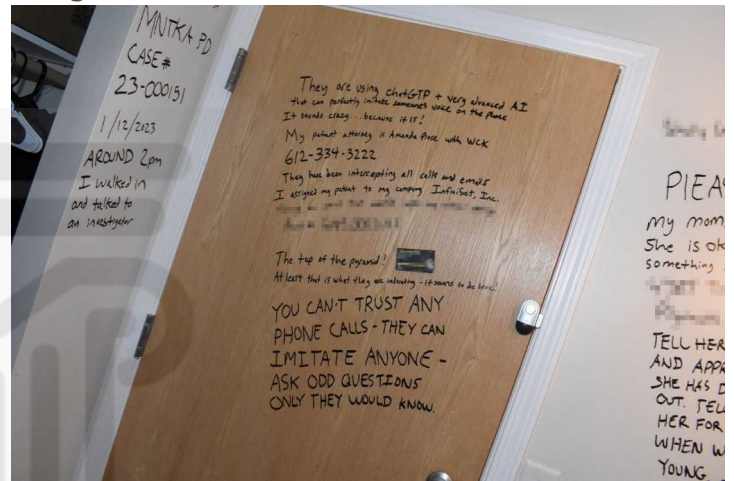 MNTKA PD
CASE #
23-000151
1/12/2023
AROUND 2pm
I walked in
and talked to
an investigator
They are using ChatGTP + very advanced AI
that can perfectly imitate someones voice on the phone
It sounds crazy... because it is!
My patent attorney is Amanda Prose with WCK
612-334-3222
They have been intercepting all calls and emails
I assigned my patent to my company InfiniSet, Inc.
The top of the pyramid:
At least that is what they are indicating - it seems to be true!
YOU CAN'T TRUST ANY
PHONE CALLS - THEY CAN
IMITATE ANYONE -
ASK ODD QUESTIONS
ONLY THEY WOULD KNOW.
my mom
She is
something
TELL HER
AND
SHE HAS
OUT.
HER FOR
WHEN
YOUNG